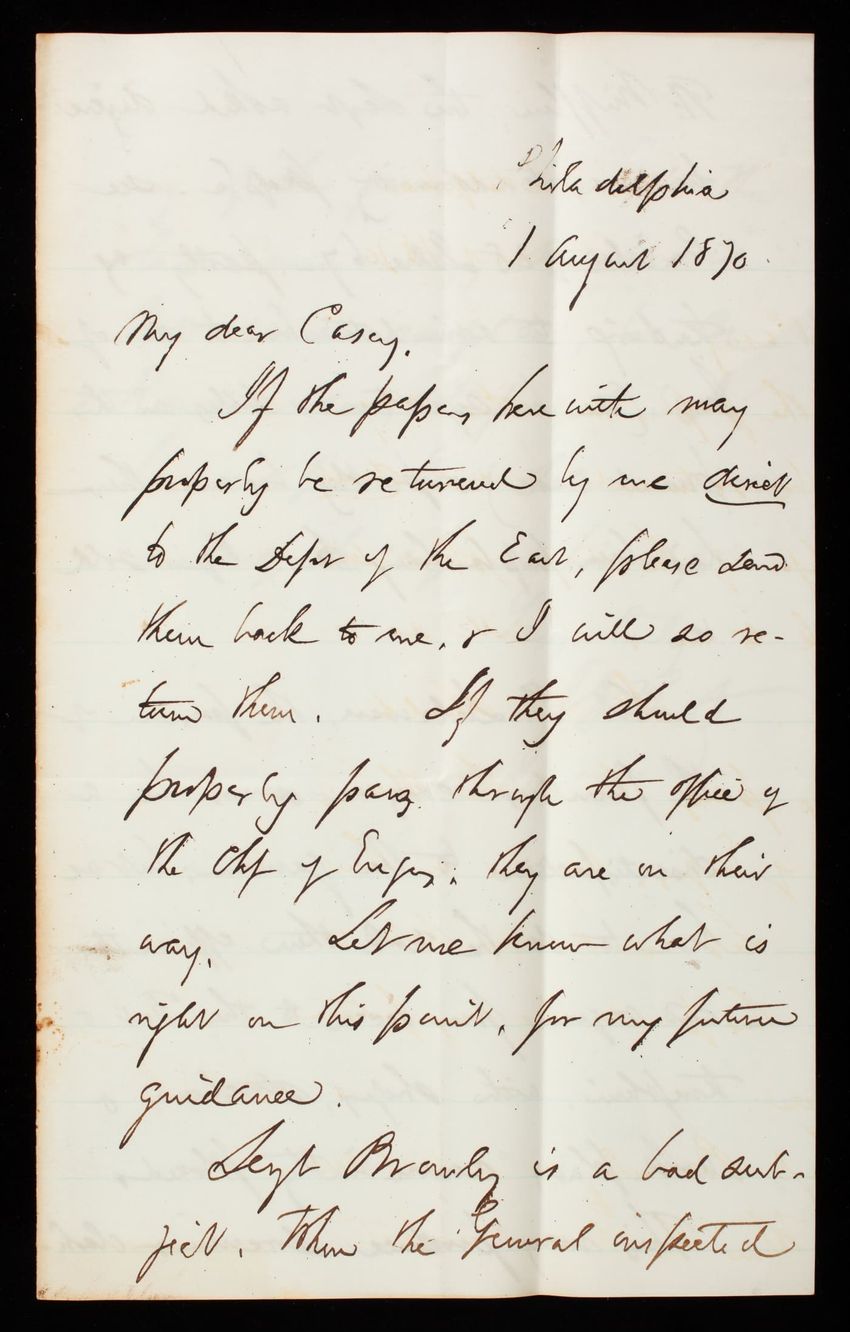 Philadelphia
1 August 1870.
My dear Casey,
If the papers herewith may
properly be returned by me direct
to the Dept of the East, please send
them back to me, & I will so re-
turn them. If they should
properly pass through the office of
the Chf of Engrs, they are on their
way. Let me know what is
right on this point, for my future
guidance.
Sergt Bromley is a bad sub-
ject. When the General inspected